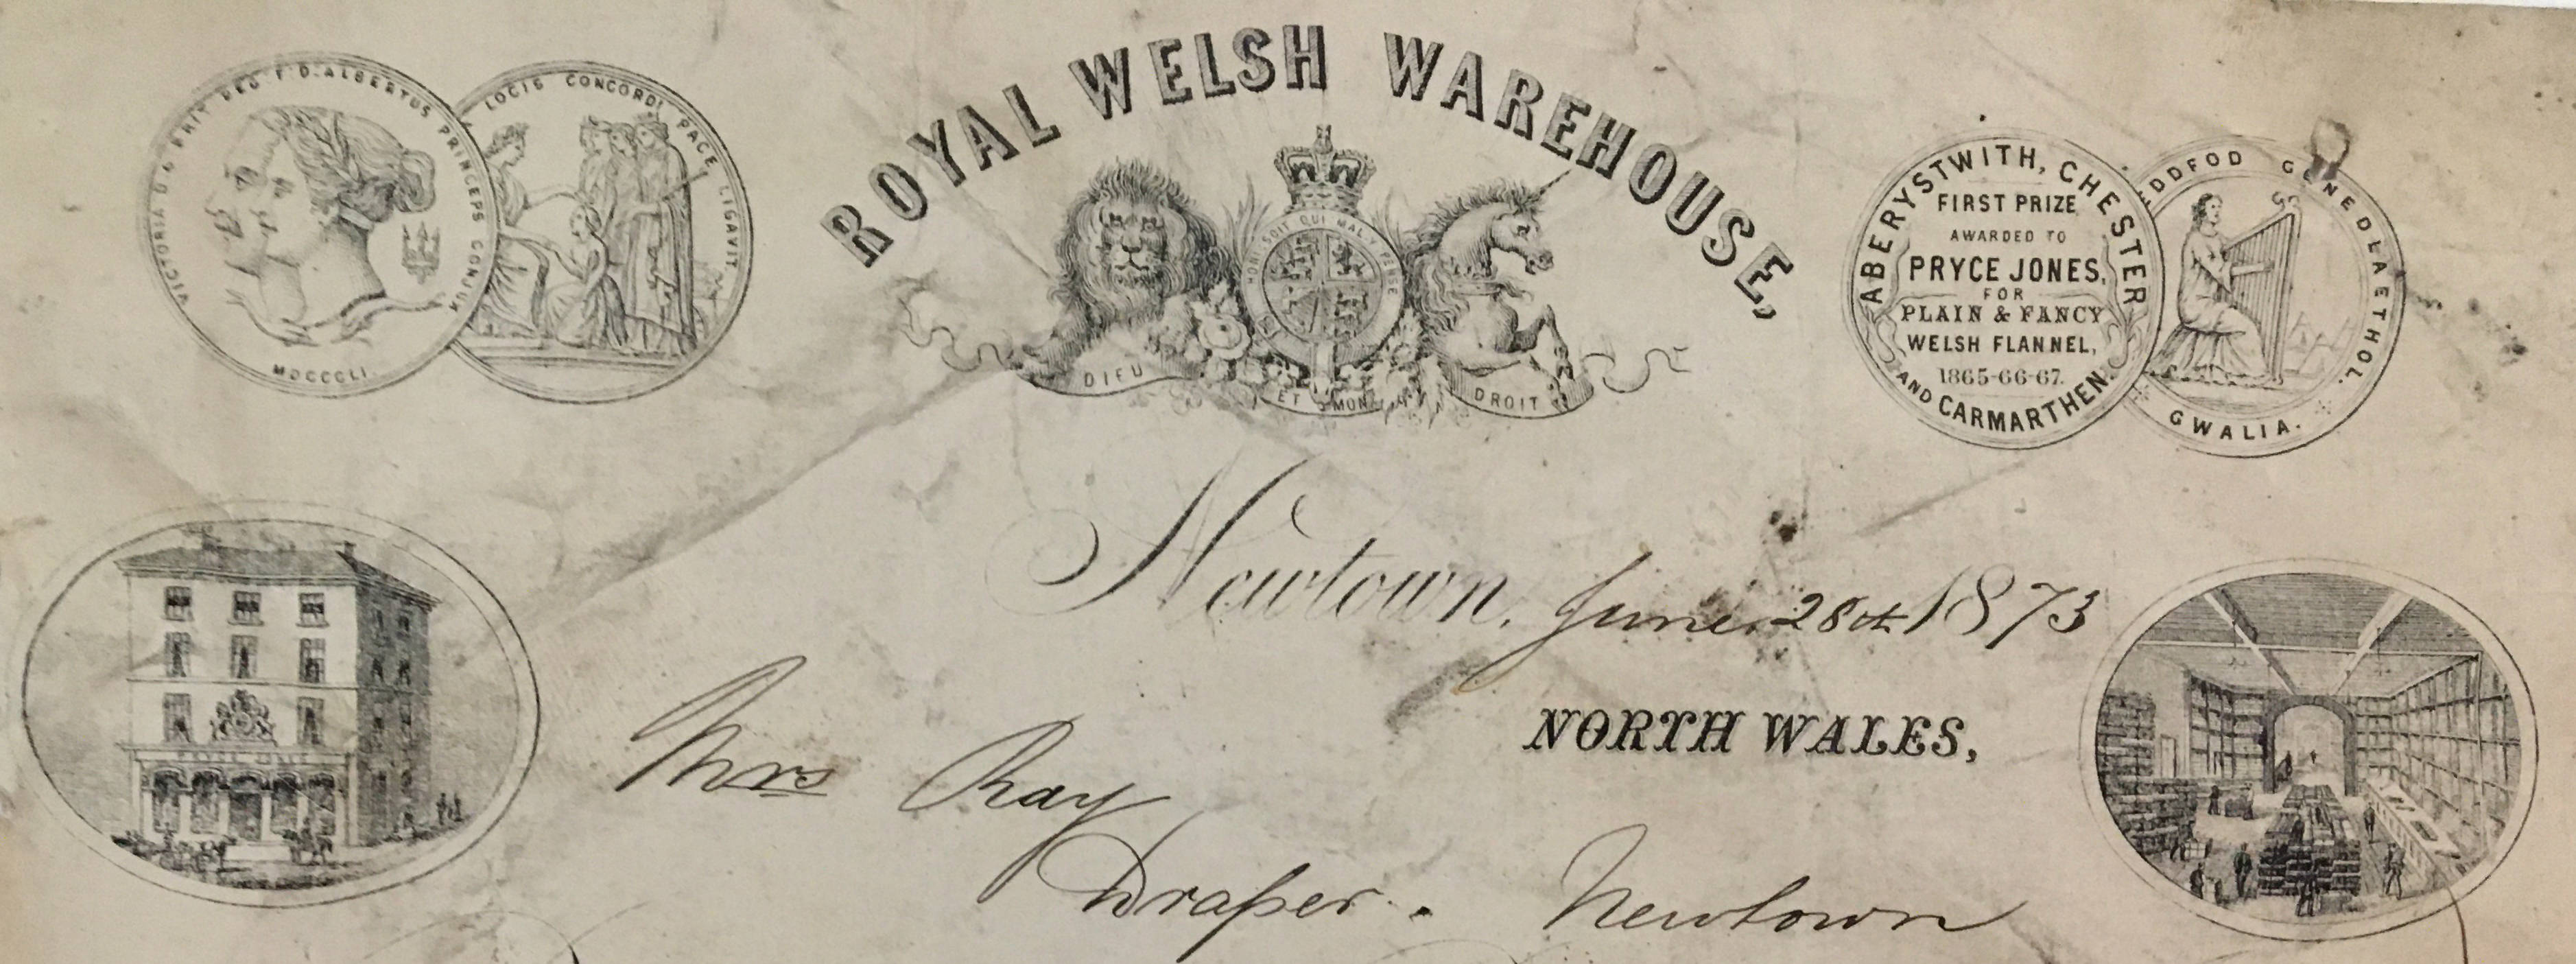 ROYAL WELSH WAREHOUSE,
VICTORIA D.G. BRIT. REG. F.D. ALBERTUS PRINCEPS CONJUX
MDCCCLI
LOCIS CONCORDI PACE LIGAVIT
HONI SOIT QUI MAL Y PENSE
DIEU ET MON DROIT
ABERYSTWITH, CHESTER
FIRST PRIZE
AWARDED TO
PRYCE JONES,
FOR
PLAIN & FANCY
WELSH FLANNEL,
1865-66-67.
AND CARMARTHEN.
EDDFOD GENEDLAETHOL.
GWALIA.
Newtown, June 28th 1873
NORTH WALES,
Mrs Ray
Draper. Newtown